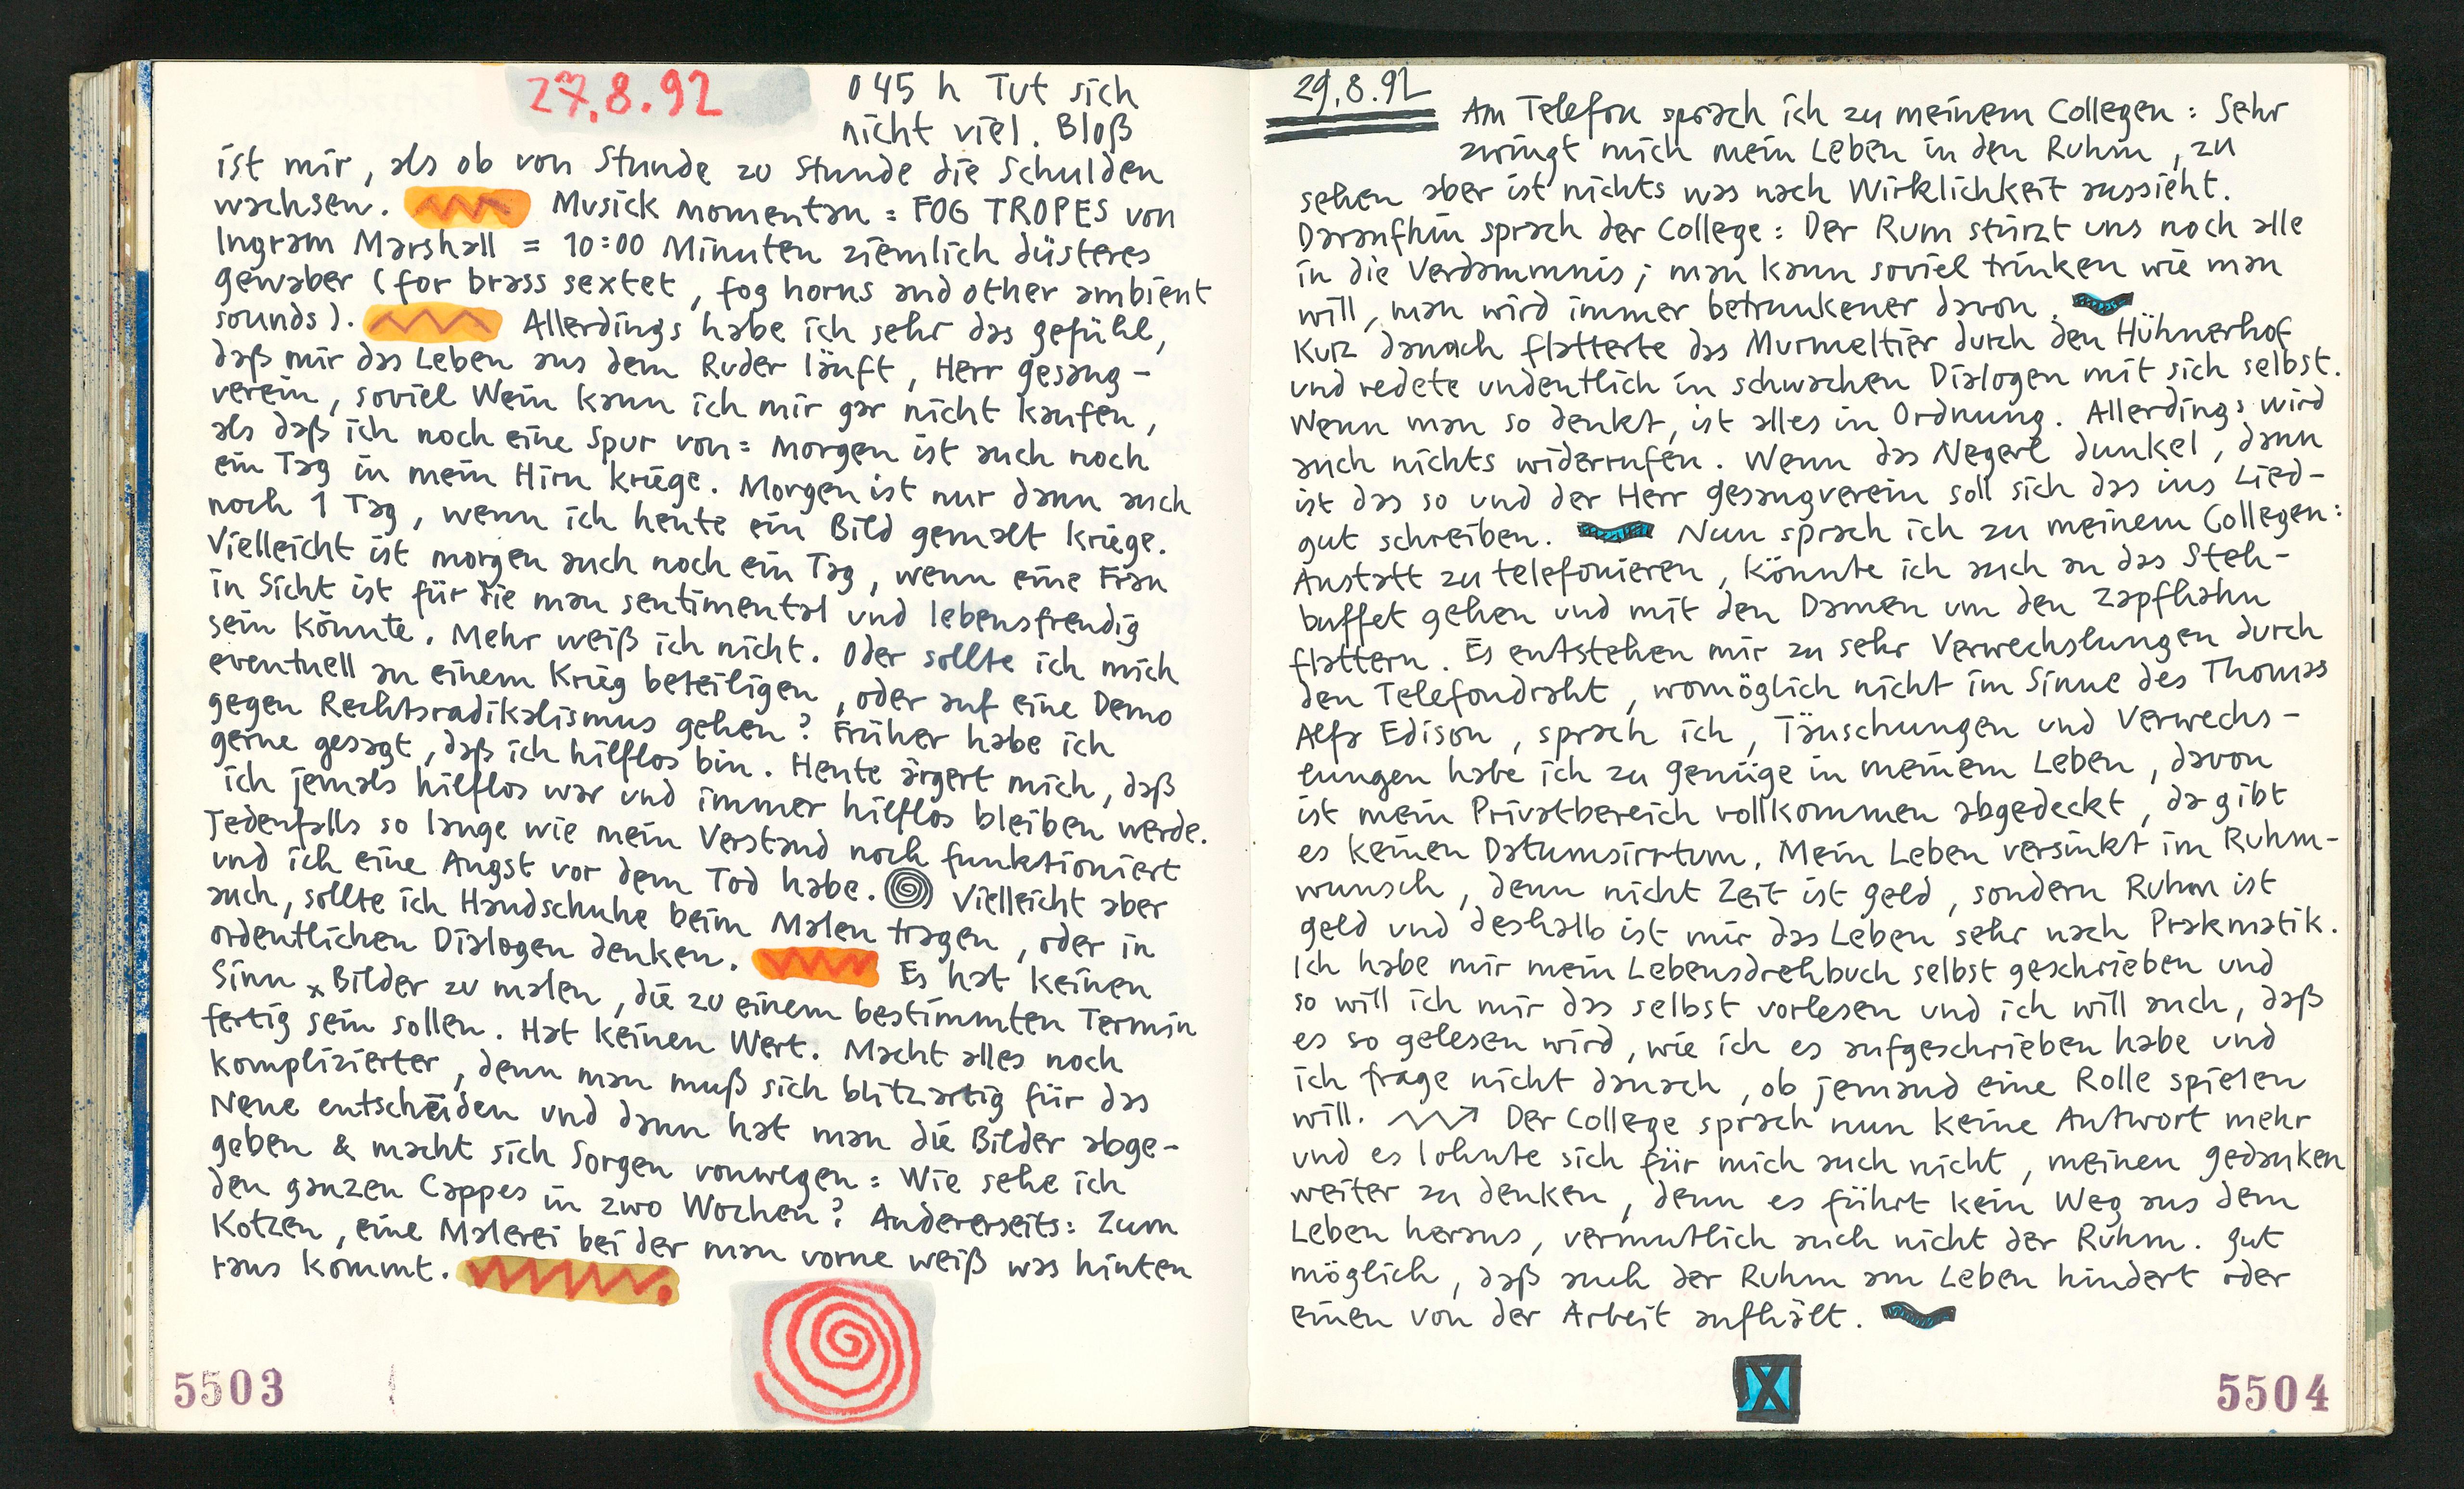 27.8.92
045 h Tut sich
nicht viel. Bloß
ist mir, als ob von Stunde zu Stunde die Schulden
wachsen. Musick momentan = FOG TROPES von
Ingram Marshall = 10:00 Minuten ziemlich düsteres
gewaber (for brass sextet, fog horns and other ambient
sounds). Allerdings habe ich sehr das gefühl,
daß mir das Leben aus dem Ruder läuft, Herr gesang-
verein, soviel Wein kann ich mir gar nicht kaufen,
als daß ich noch eine Spur von = morgen ist auch noch
ein Tag in mein Hirn kriege. Morgen ist nur dann auch
noch 1 Tag, wenn ich heute ein Bild gemalt kriege.
Vielleicht ist morgen auch noch ein Tag, wenn eine Frau
in Sicht ist für die man sentimental und lebensfreudig
sein könnte. Mehr weiß ich nicht. Oder sollte ich mich
eventuell an einem Krieg beteiligen, oder auf eine Demo
gegen Rechtsradikalismus gehen? Früher habe ich
gerne gesagt, daß ich hilflos bin. Heute ärgert mich, daß
ich jemals hilflos war und immer hilflos bleiben werde.
Jedenfalls so lange wie mein Verstand noch funktioniert
und ich eine Angst vor dem Tod habe. Vielleicht aber
auch, sollte ich Handschuhe beim Malen tragen, oder in
ordentlichen Dialogen denken. Es hat keinen
Sinn x Bilder zu malen, die zu einem bestimmten Termin
fertig sein sollen. Hat keinen Wert. Macht alles noch
komplizierter, denn man muß sich blitzartig für das
Neue entscheiden und dann hat man die Bilder abge-
geben & macht sich Sorgen vonwegen = Wie sehe ich
den ganzen Cappes in zwo Wochen? Andererseits: Zum
Kotzen, eine Malerei bei der man vorne weiß was hinten
raus kommt.
5503
29.8.92
Am Telefon sprach ich zu meinem Collegen: Sehr
zwingt mich mein Leben in den Ruhm, zu
sehen aber ist nichts was nach Wirklichkeit aussieht.
Daraufhin sprach der College: Der Rum stürzt uns noch alle
in die Verdammnis; man kann soviel trinken wie man
will, man wird immer betrunkener davon.
Kurz danach flatterte das Murmeltier durch den Hühnerhof
und redete undeutlich in schwachen Dialogen mit sich selbst.
Wenn man so denkt, ist alles in Ordnung. Allerdings wird
auch nichts widerrufen. Wenn das Negerl dunkel, dann
ist das so und der Herr gesangverein soll sich das ins Lied-
gut schreiben. Nun sprach ich zu meinem Collegen:
Anstatt zu telefonieren, könnte ich auch an das Steh-
buffet gehen und mit den Damen um den Zapfhahn
flattern. Es entstehen mir zu sehr Verwechslungen durch
den Telefondraht, womöglich nicht im Sinne des Thomas
Alfa Edison, sprach ich, Täuschungen und Verwechs-
lungen habe ich zu genüge in meinem Leben, davon
ist mein Privatbereich vollkommen abgedeckt, da gibt
es keinen Datumsirrtum. Mein Leben versinkt im Ruhm-
wunsch, denn nicht Zeit ist geld, sondern Ruhm ist
geld und deshalb ist mir das Leben sehr nach Prakmatik.
Ich habe mir mein Lebensdrehbuch selbst geschrieben und
so will ich mir das selbst vorlesen und ich will auch, daß
es so gelesen wird, wie ich es aufgeschrieben habe und
ich frage nicht danach, ob jemand eine Rolle spielen
will. Der College sprach nun keine Antwort mehr
und es lohnte sich für mich auch nicht, meinen gedanken
weiter zu denken, denn es führt kein Weg aus dem
Leben heraus, vermutlich auch nicht der Ruhm. gut
möglich, daß auch der Ruhm am Leben hindert oder
einen von der Arbeit aufhält.
X
5504